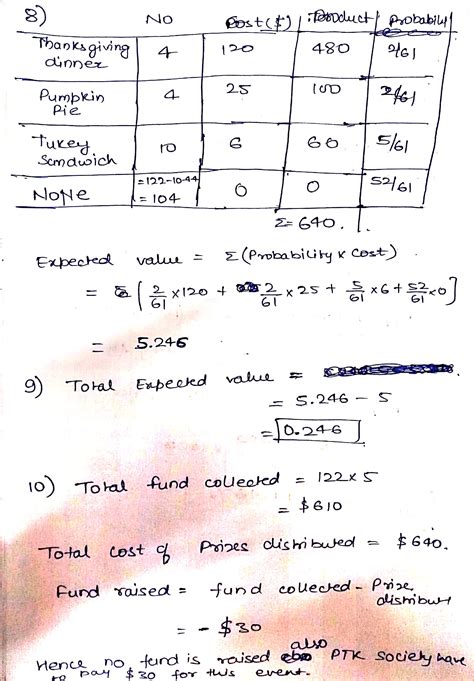 8) No Cost($) Product Probabili
Thanksgiving dinner 4 120 480 2/61
Pumpkin Pie 4 25 100 2/61
Tukey Sandwich 10 6 60 5/61
None =122-10-44 = 104 0 0 52/61
Σ= 640.
Expected value = Σ(Probability x Cost)
= [2/61 x120 + 2/61 x 25 + 5/61 x 6 + 52/61 x0]
= 5.246
9) Total Expected value =
= 5.246 - 5
= 0.246
10) Total fund collected = 122x5
= $610
Total cost of Prizes distributed = $640.
Fund raised = fund collected - Prize distribut
= - $30
Hence no fund is raised also PTK society have
to pay $30 for this event.